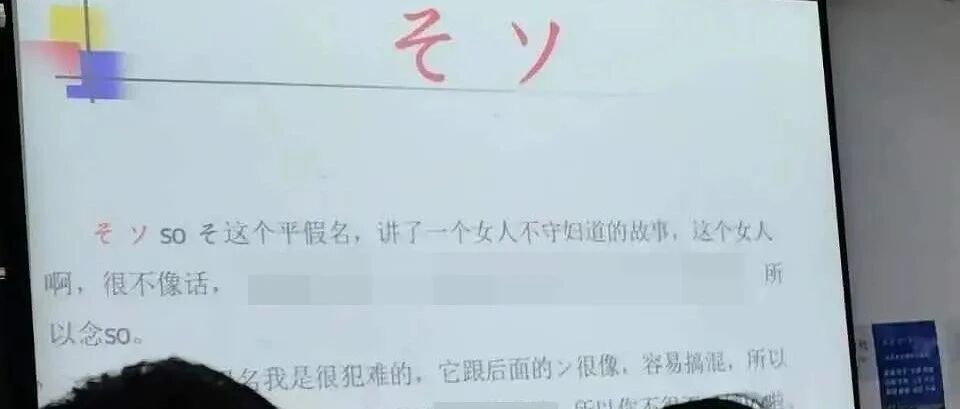 そ ソ
そ ソ so そ这个平假名，讲了一个女人不守妇道的故事，这个女人
啊，很不像话， 所
以念so。
名我是很犯难的，它跟后面的ン很像，容易搞混，所以
所以你不得不